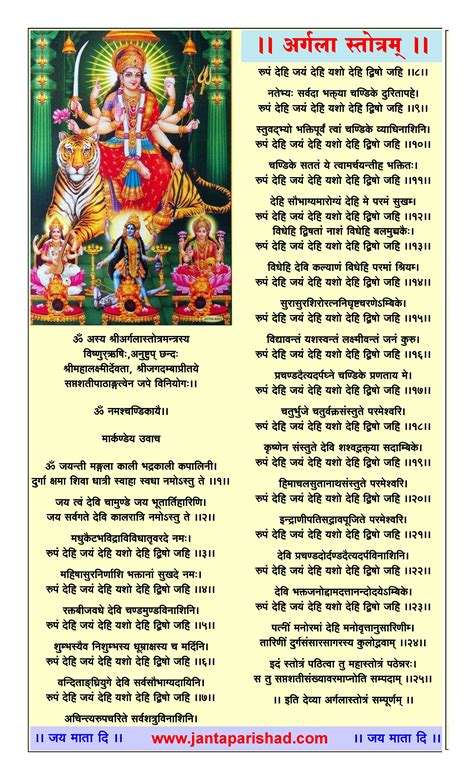 ।। अर्गला स्तोत्रम् ।।
ॐ अस्य श्रीअर्गलास्तोत्रमन्त्रस्य
विष्णुर्ऋषिः,अनुष्टुप् छन्दः
श्रीमहालक्ष्मीर्देवता, श्रीजगदम्बाप्रीतये
सप्तशतीपाठाङ्गत्वेन जपे विनियोगः।।
ॐ नमश्चण्डिकायै।।
मार्कण्डेय उवाच
ॐ जयन्ती मङ्गला काली भद्रकाली कपालिनी।
दुर्गा क्षमा शिवा धात्री स्वाहा स्वधा नमोऽस्तु ते ।।१।।
जय त्वं देवि चामुण्डे जय भूतार्तिहारिणि।
जय सर्वगते देवि कालरात्रि नमोऽस्तु ते ।।२।।
मधुकैटभविद्राविविधातृवरदे नमः।
रुपं देहि जयं देहि यशो देहि द्विषो जहि ।।३।।
महिषासुरनिर्णाशि भक्तानां सुखदे नमः।
रुपं देहि जयं देहि यशो देहि द्विषो जहि ।।४।।
रक्तबीजवधे देवि चण्डमुण्डविनाशिनि।
रुपं देहि जयं देहि यशो देहि द्विषो जहि ।।५।।
शुम्भस्यैव निशुम्भस्य धूम्राक्षस्य च मर्दिनि।
रुपं देहि जयं देहि यशो देहि द्विषो जहि ।।६।।
वन्दिताङ्घ्रियुगे देवि सर्वसौभाग्यदायिनि।
रुपं देहि जयं देहि यशो देहि द्विषो जहि ।।७।।
अचिन्त्यरुपचरिते सर्वशत्रुविनाशिनि।
रुपं देहि जयं देहि यशो देहि द्विषो जहि ।।८।।
नतेभ्यः सर्वदा भक्तया चण्डिके दुरितापहे।
रुपं देहि जयं देहि यशो देहि द्विषो जहि ।।९।।
स्तुवद्भ्यो भक्तिपूर्वं त्वां चण्डिके व्याधिनाशिनि।
रुपं देहि जयं देहि यशो देहि द्विषो जहि ।।१०।।
चण्डिके सततं ये त्वामर्चयन्तीह भक्तितः।
रुपं देहि जयं देहि यशो देहि द्विषो जहि ।।११।।
देहि सौभाग्यमारोग्यं देहि मे परमं सुखम्।
रुपं देहि जयं देहि यशो देहि द्विषो जहि ।।१२।।
विधेहि द्विषतां नाशं विधेहि बलमुच्चकैः।
रुपं देहि जयं देहि यशो देहि द्विषो जहि ।।१३।।
विधेहि देवि कल्याणं विधेहि परमां श्रियम्।
रुपं देहि जयं देहि यशो देहि द्विषो जहि ।।१४।।
सुरासुरशिरोरत्ननिघृष्टचरणेऽम्बिके।
रुपं देहि जयं देहि यशो देहि द्विषो जहि ।।१५।।
विद्यावन्तं यशस्वन्तं लक्ष्मीवन्तं जनं कुरु।
रुपं देहि जयं देहि यशो देहि द्विषो जहि ।।१६।।
प्रचण्डदैत्यदर्पघ्ने चण्डिके प्रणताय मे।
रुपं देहि जयं देहि यशो देहि द्विषो जहि ।।१७।।
चतुर्भुजे चतुर्वक्त्रसंस्तुते परमेश्वरि।
रुपं देहि जयं देहि यशो देहि द्विषो जहि ।।१८।।
कृष्णेन संस्तुते देवि शश्वद्भक्तया सदाम्बिके।
रुपं देहि जयं देहि यशो देहि द्विषो जहि ।।१९।।
हिमाचलसुतानाथसंस्तुते परमेश्वरि।
रुपं देहि जयं देहि यशो देहि द्विषो जहि ।।२०।।
इन्द्राणीपतिसद्भावपूजिते परमेश्वरि।
रुपं देहि जयं देहि यशो देहि द्विषो जहि ।।२१।।
देवि प्रचण्डदोर्दण्डदैत्यदर्पविनाशिनि।
रुपं देहि जयं देहि यशो देहि द्विषो जहि ।।२२।।
देवि भक्तजनोद्दामदत्तानन्दोदयेऽम्बिके।
रुपं देहि जयं देहि यशो देहि द्विषो जहि ।।२३।।
पत्नीं मनोरमां देहि मनोवृत्तानुसारिणीम्।
तारिणीं दुर्गसंसारसागरस्य कुलोद्भवाम् ।।२४।।
इदं स्तोत्रं पठित्वा तु महास्तोत्रं पठेन्नरः।
स तु सप्तशतीसंख्यावरमाप्नोति सम्पदाम् ।।२५।।
।। इति देव्या अर्गलास्तोत्रं सम्पूर्णम् ।।
।। जय माता दि ।। www.jantaparishad.com ।। जय माता दि ।।